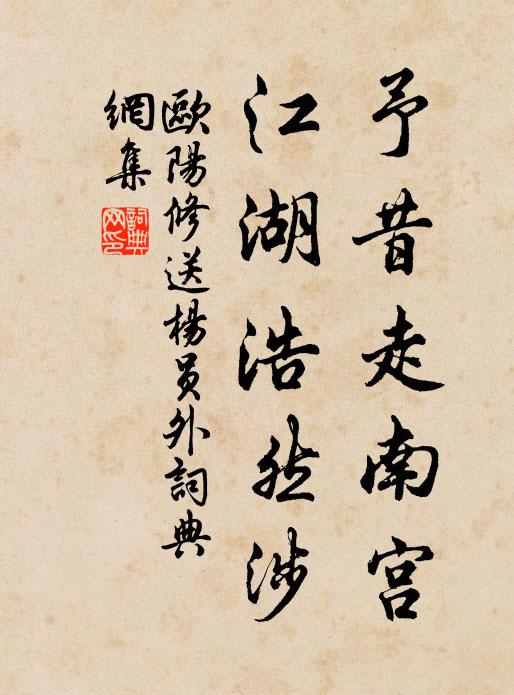 予昔走南宫
江湖浩然涉
歐陽修送楊員外詞典
網集
詞典
网印